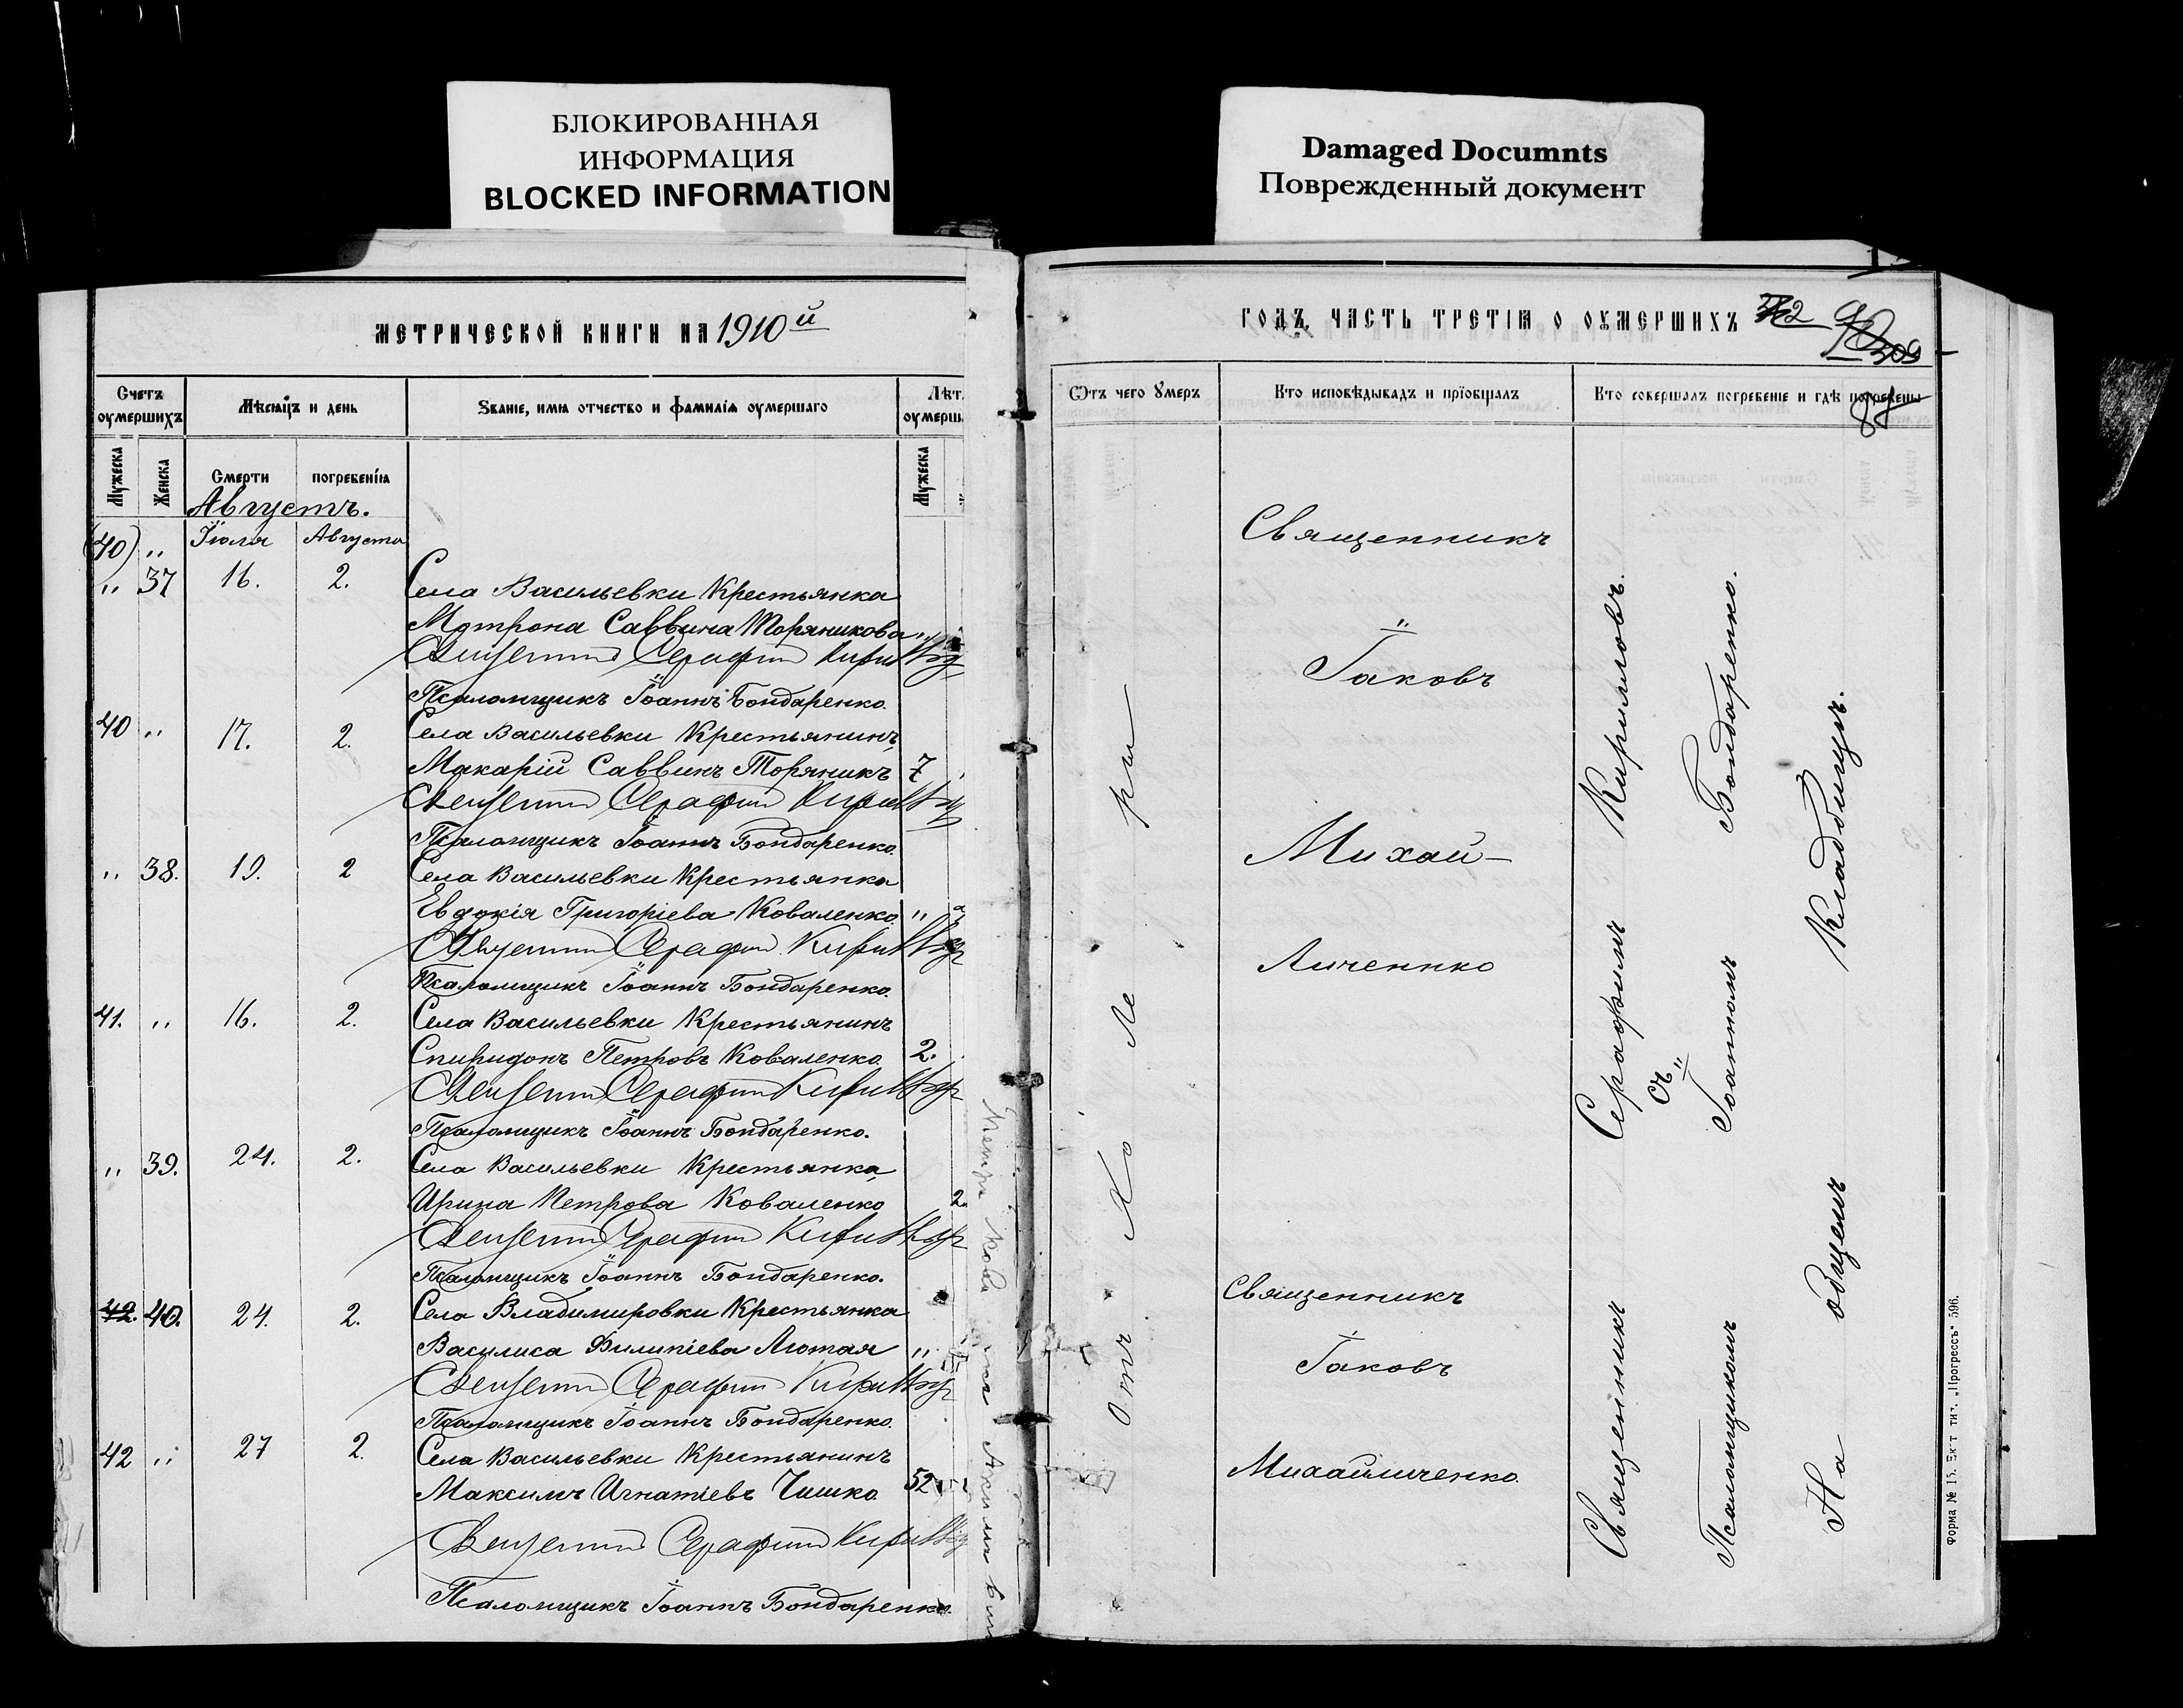 БЛОКИРОВАННАЯ
ИНФОРМАЦИЯ
BLOCKED INFORMATION
Damaged Documnts
Поврежденный документ
МЕТРИЧЕСКОЙ КНИГИ НА 1910й
Счетъ оумершихъ
Мѣсяцъ и день
Званіе, имя отчество и фамилія оумершаго
Лѣт. оумерш.
Мужеска
Женска
Смерти
погребенія
Мужеска
Августъ.
(40) " Іюля Августа
" 37 16. 2. Села Васильевки Крестьянка
Мотрона Саввина Торяникова "
Священникъ Серафим Кирил
Псаломщикъ Іоаннъ Бондаренко.
40 " 17. 2. Села Васильевки Крестьянинъ
Макарій Саввинъ Торяникъ 7
Священникъ Серафим Кирил
Псаломщикъ Іоаннъ Бондаренко.
" 38. 19. 2 Села Васильевки Крестьянка
Евдокія Григоріева Коваленко "
Священникъ Серафим Кирил
Псаломщикъ Іоаннъ Бондаренко.
41. " 16. 2. Села Васильевки Крестьянинъ
Спиридонъ Петровъ Коваленко 2.
Священникъ Серафим Кирил
Псаломщикъ Іоаннъ Бондаренко.
" 39. 24. 2. Села Васильевки Крестьянка
Ирина Петрова Коваленко 2
Священникъ Серафим Кирил
Псаломщикъ Іоаннъ Бондаренко.
42. 40. 24. 2. Села Владимировки Крестьянка
Василиса Филипіева Лютая "
Священникъ Серафим Кирил
Псаломщикъ Іоаннъ Бондаренко.
42 " 27 2. Села Васильевки Крестьянинъ
Максимъ Игнатіевъ Чишко 52
Священникъ Серафим Кирил
Псаломщикъ Іоаннъ Бондаренко.
ГОДЪ, ЧАСТЬ ТРЕТІЯ О ОУМЕРШИХЪ
309
Отъ чего умеръ
Кто исповѣдывадъ и пріобщалъ
Кто совершалъ погребеніе и гдѣ погребены
Отъ Холеры
Священникъ
Іаковъ
Михай-
личенко
Священникъ
Іаковъ
Михайличенко.
Священникъ Серафимъ Кирилловъ.
съ
Псаломщикомъ Іоанномъ Бондаренко.
На общемъ Кладбищѣ.
Форма № 15. Ек-т тип. „Прогрессъ" 596.